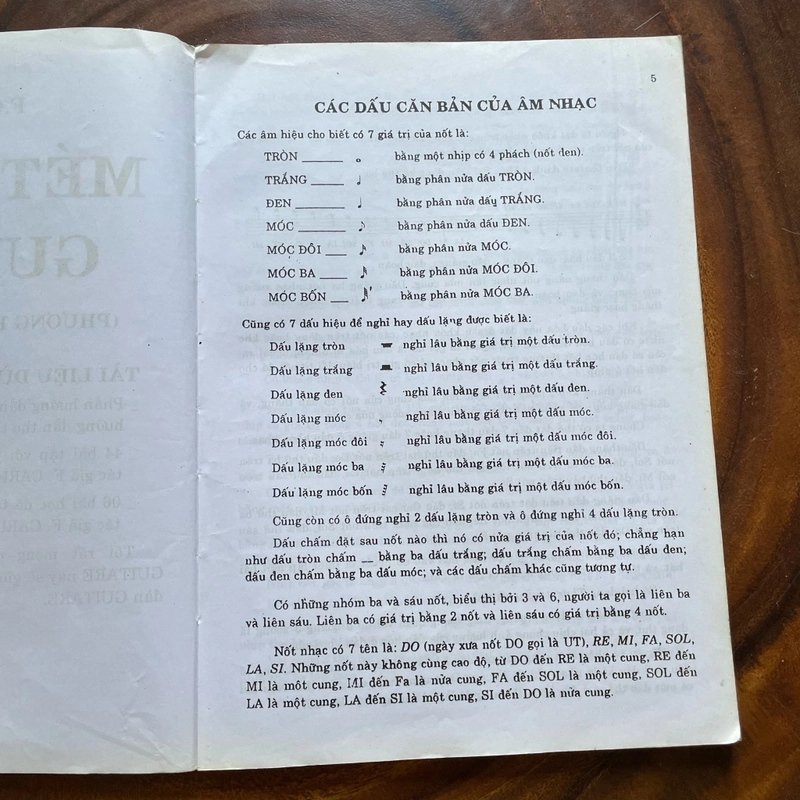 5
CÁC DẤU CĂN BẢN CỦA ÂM NHẠC
Các âm hiệu cho biết có 7 giá trị của nốt là:
TRÒN ______ bằng một nhịp có 4 phách (nốt đen).
TRẮNG _____ bằng phân nửa dấu TRÒN.
ĐEN _______ bằng phân nửa dấu TRẮNG.
MÓC ______ bằng phân nửa dấu ĐEN.
MÓC ĐÔI ___ bằng phân nửa MÓC.
MÓC BA ____ bằng phân nửa MÓC ĐÔI.
MÓC BỐN ___ bằng phân nửa MÓC BA.
Cũng có 7 dấu hiệu để nghỉ hay dấu lặng được biết là:
Dấu lặng tròn nghỉ lâu bằng giá trị một dấu tròn.
Dấu lặng trắng nghỉ lâu bằng giá trị một dấu trắng.
Dấu lặng đen nghỉ lâu bằng giá trị một dấu đen.
Dấu lặng móc nghỉ lâu bằng giá trị một dấu móc.
Dấu lặng móc đôi nghỉ lâu bằng giá trị một dấu móc đôi.
Dấu lặng móc ba nghỉ lâu bằng giá trị một dấu móc ba.
Dấu lặng móc bốn nghỉ lâu bằng giá trị một dấu móc bốn.
Cũng còn có ô đứng nghỉ 2 dấu lặng tròn và ô đứng nghỉ 4 dấu lặng tròn.
Dấu chấm đặt sau nốt nào thì nó có nửa giá trị của nốt đó; chẳng hạn
như dấu tròn chấm __ bằng ba dấu trắng; dấu trắng chấm bằng ba dấu đen;
dấu đen chấm bằng ba dấu móc; và các dấu chấm khác cũng tương tự.
Có những nhóm ba và sáu nốt, biểu thị bởi 3 và 6, người ta gọi là liên ba
và liên sáu. Liên ba có giá trị bằng 2 nốt và liên sáu có giá trị bằng 4 nốt.
Nốt nhạc có 7 tên là: DO (ngày xưa nốt DO gọi là UT), RE, MI, FA, SOL,
LA, SI. Những nốt này không cùng cao độ, từ DO đến RE là một cung, RE đến
MI là một cung, MI đến Fa là nửa cung, FA đến SOL là một cung, SOL đến
LA là một cung, LA đến SI là một cung, SI đến DO là nửa cung.